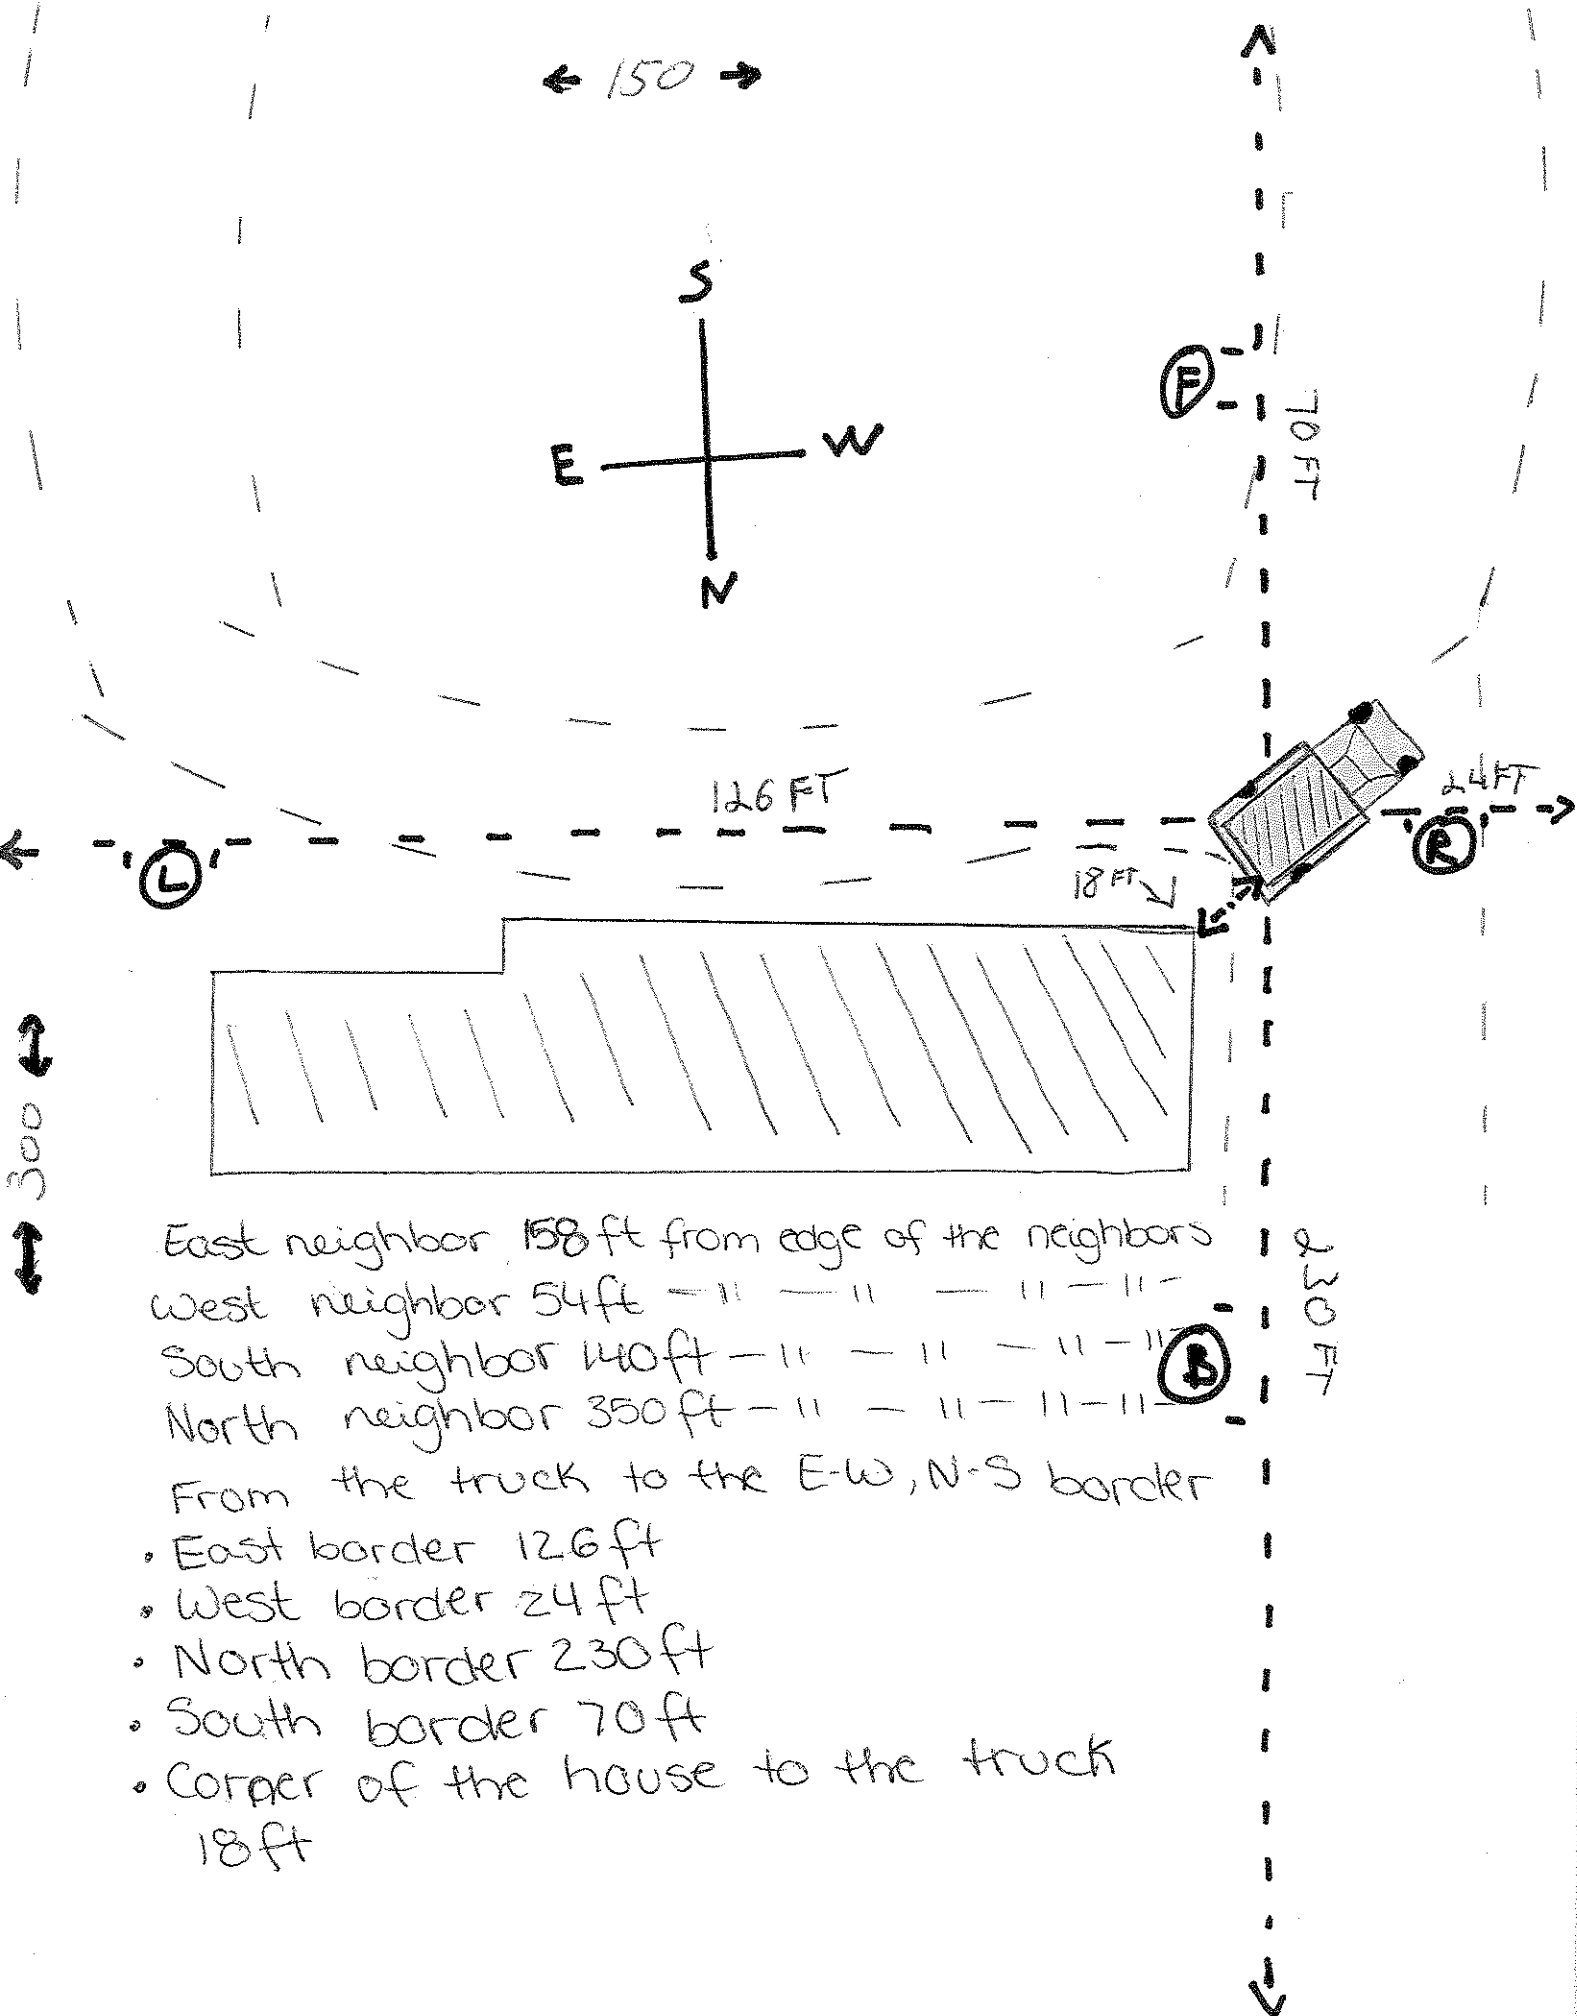 ← 150 →
S
E W
N
F
70 FT
126 FT
24 FT
L
R
18 FT
300
East neighbor 158ft from edge of the neighbors
West neighbor 54ft — " — " — " — " —
South neighbor 140ft — " — " — " — "
North neighbor 350ft — " — " — " — " —
B
230 FT
From the truck to the E-W, N-S border
• East border 126ft
• West border 24ft
• North border 230ft
• South border 70ft
• Corner of the house to the truck
18ft